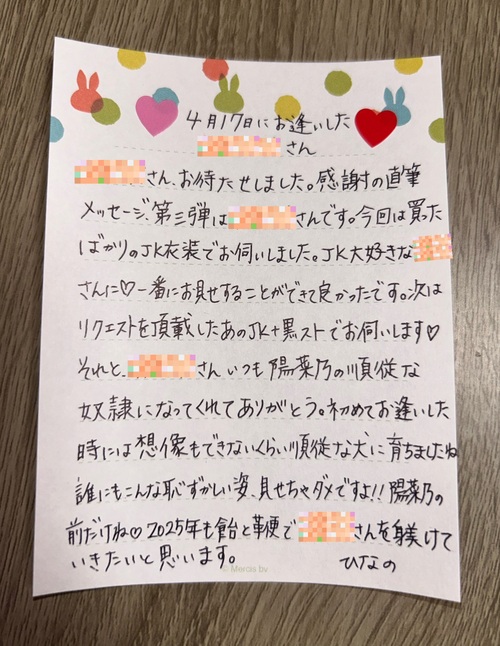 4月17日にお逢いした
さん
さん、お待たせしました。感謝の直筆
メッセージ、第三弾は さんです。今回は買った
ばかりのJK衣装でお伺いしました。JK大好きな
さんに♡一番にお見せすることができて良かったです。次は
リクエストを頂載したあのJK+黒ストでお伺いします♡
それと、 さんいつも陽菜乃の順従な
奴隷になってくれてありがとう。初めてお逢いした
時には想像もできないくらい順従な犬に育ちましたね
誰にもこんな恥ずかしい姿、見せちゃダメですよ!!陽菜乃の
前だけね♡2025年も飴と鞭で さんを躾けて
いきたいと思います。 ひなの
© Mercis bv